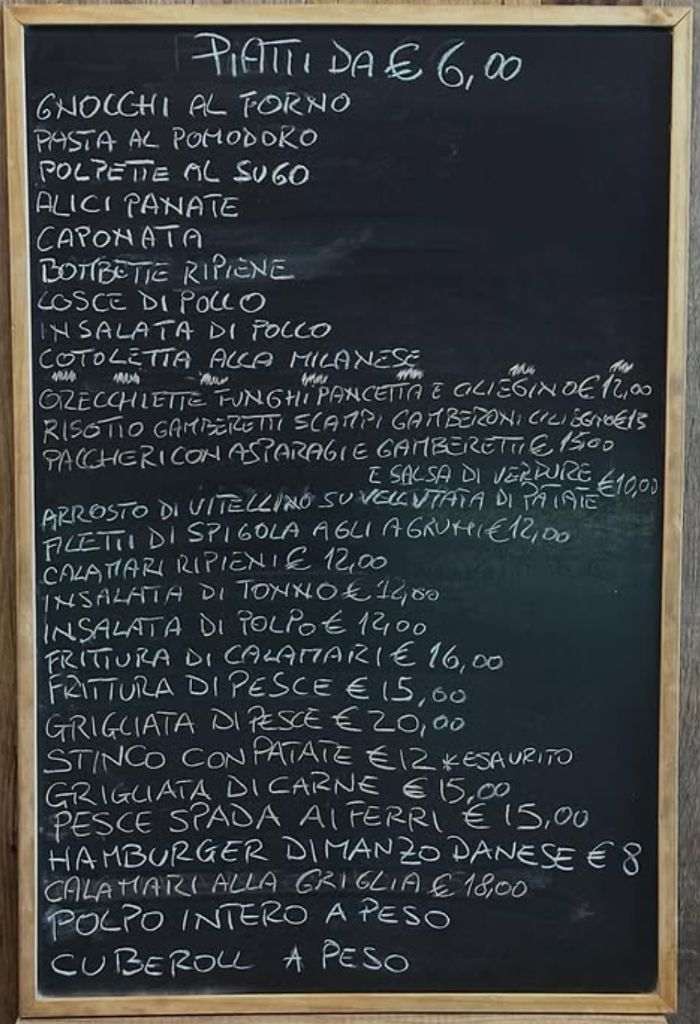 PIATTI DA € 6,00
GNOCCHI AL FORNO
PASTA AL POMODORO
POLPETTE AL SUGO
ALICI PANATE
CAPONATA
BOMBETTE RIPIENE
COSCE DI POLLO
INSALATA DI POLLO
COTOLETTA ALLA MILANESE
ORECCHIETTE FUNGHI PANCETTA E CILIEGINO € 12,00
RISOTTO GAMBERETTI SCAMPI GAMBERONI CILIEGINO €13
PACCHERI CON ASPARAGI E GAMBERETTI € 15,00
E SALSA DI VERDURE €10,00
ARROSTO DI VITELLINO SU VELLUTATA DI PATATE
FILETTI DI SPIGOLA AGLI AGRUMI €12,00
CALAMARI RIPIENI € 12,00
INSALATA DI TONNO € 12,00
INSALATA DI POLPO € 12,00
FRITTURA DI CALAMARI € 16,00
FRITTURA DI PESCE € 15,00
GRIGLIATA DI PESCE € 20,00
STINCO CON PATATE €12 *ESAURITO
GRIGLIATA DI CARNE € 15,00
PESCE SPADA AI FERRI € 15,00
HAMBURGER DI MANZO DANESE € 8
CALAMARI ALLA GRIGLIA € 18,00
POLPO INTERO A PESO
CUBEROLL A PESO